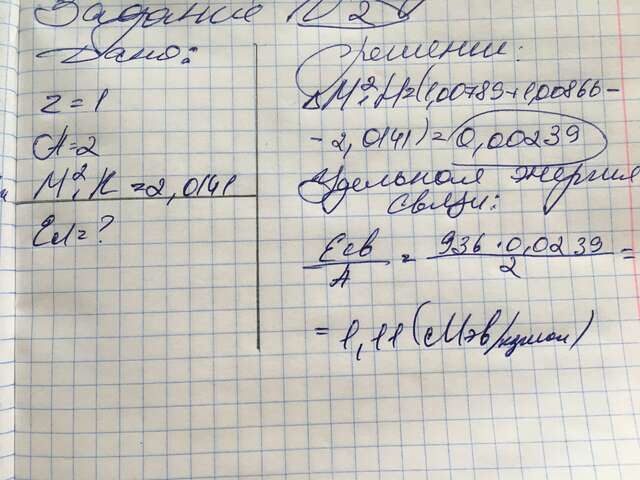 Задание № 2
Дано:
Z = 1
A = 2
M ²₁H = 2,0141
Eсв = ?
Решение:
ΔM ²₁H = (1,00789 + 1,00866 -
- 2,0141) = 0,00239
Удельная энергия
связи:
Eсв/A = 936 · 0,0239/2 =
= 1,11 (Мэв/нуклон)